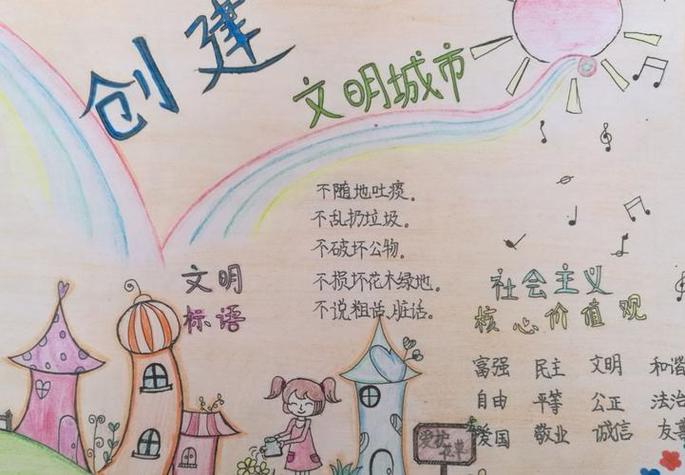 创建
文明城市
不随地吐痰。
不乱扔垃圾。
不破坏公物。
不损坏花木绿地。
不说粗话、脏话。
文明
标语
社会主义
核心价值观
富强 民主 文明 和谐
自由 平等 公正 法治
爱国 敬业 诚信 友善
爱护
花草